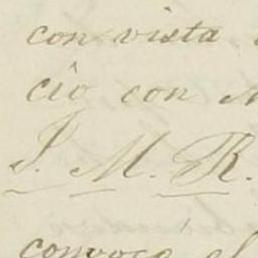 con vista
cio con
I. M. R.
convoco el